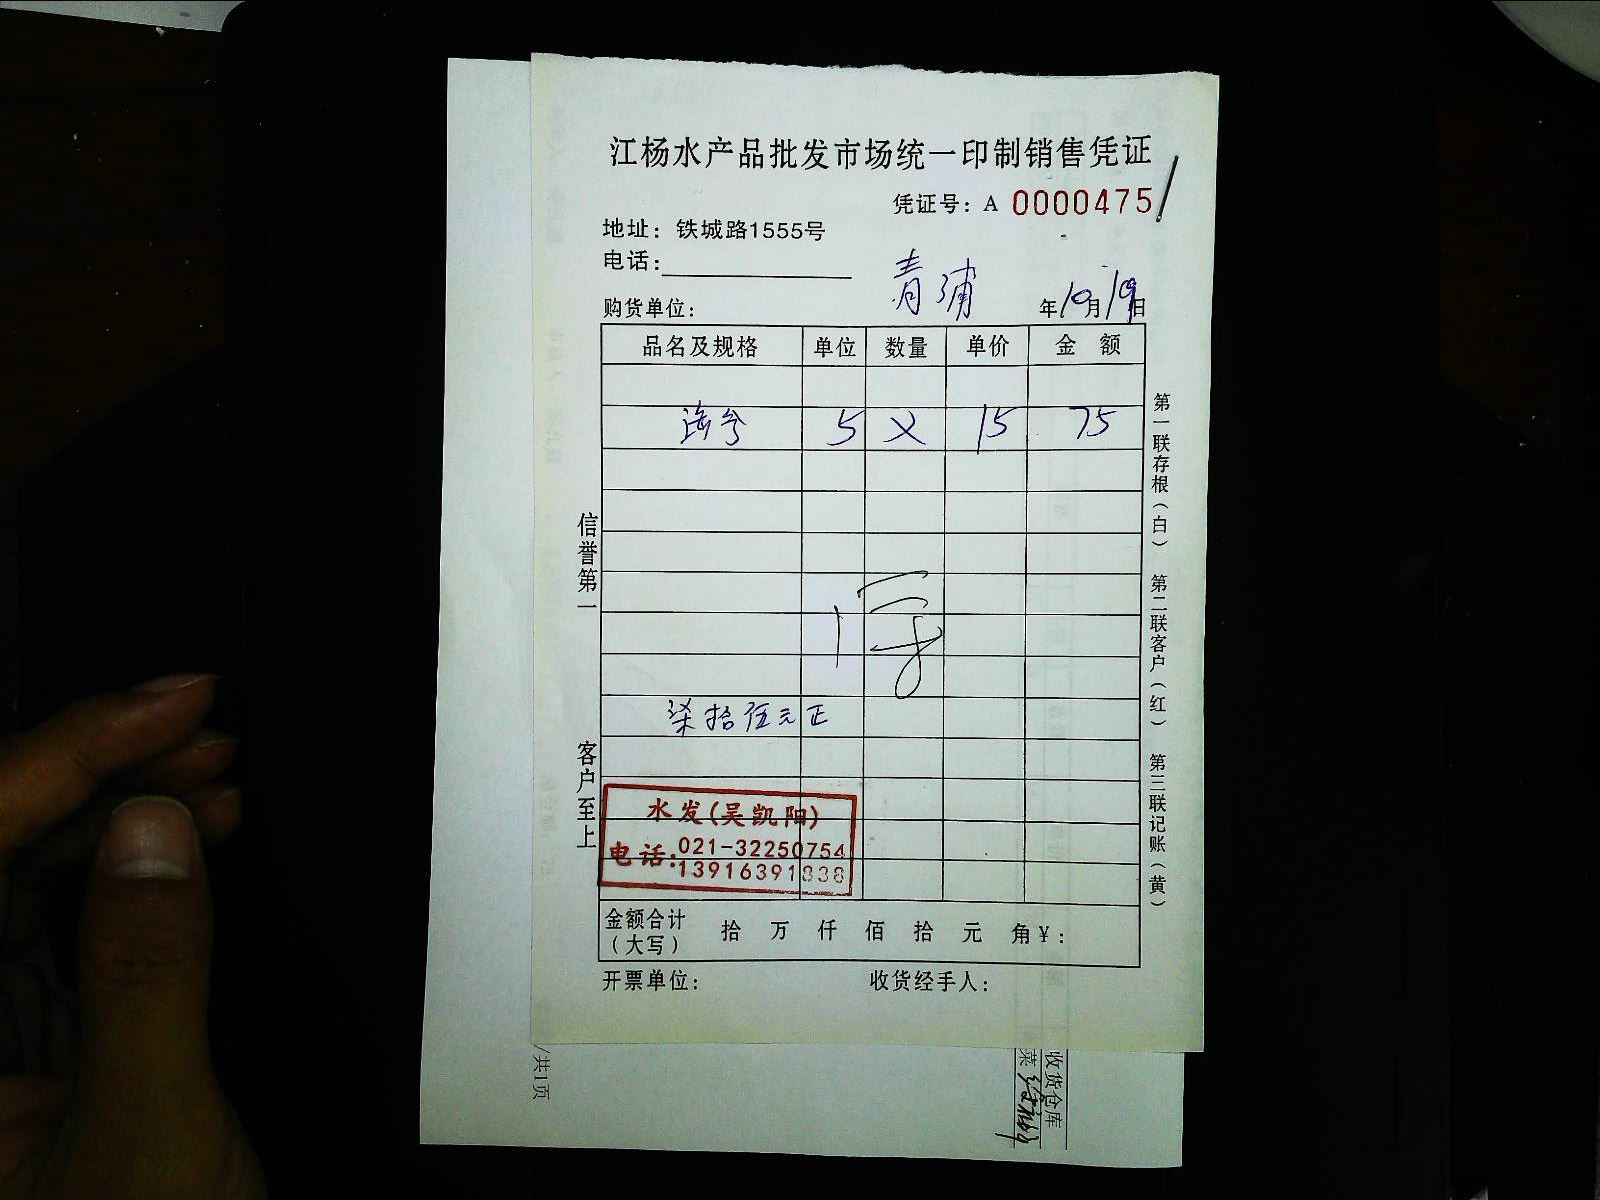 江杨水产品批发市场统一印制销售凭证
凭证号：A 0000475
地址：铁城路1555号
电话：
青浦
购货单位： 年10月19日
品名及规格 单位 数量 单价 金 额
5 15 75
柒拾伍元正
水发(吴凯阳)
电话：021-32250754
13916391838
金额合计（大写） 拾 万 仟 佰 拾 元 角 ¥：
开票单位： 收货经手人：
信誉第一
客户至上
第一联存根（白） 第二联客户（红） 第三联记账（黄）
/共1页
收货仓库
菜